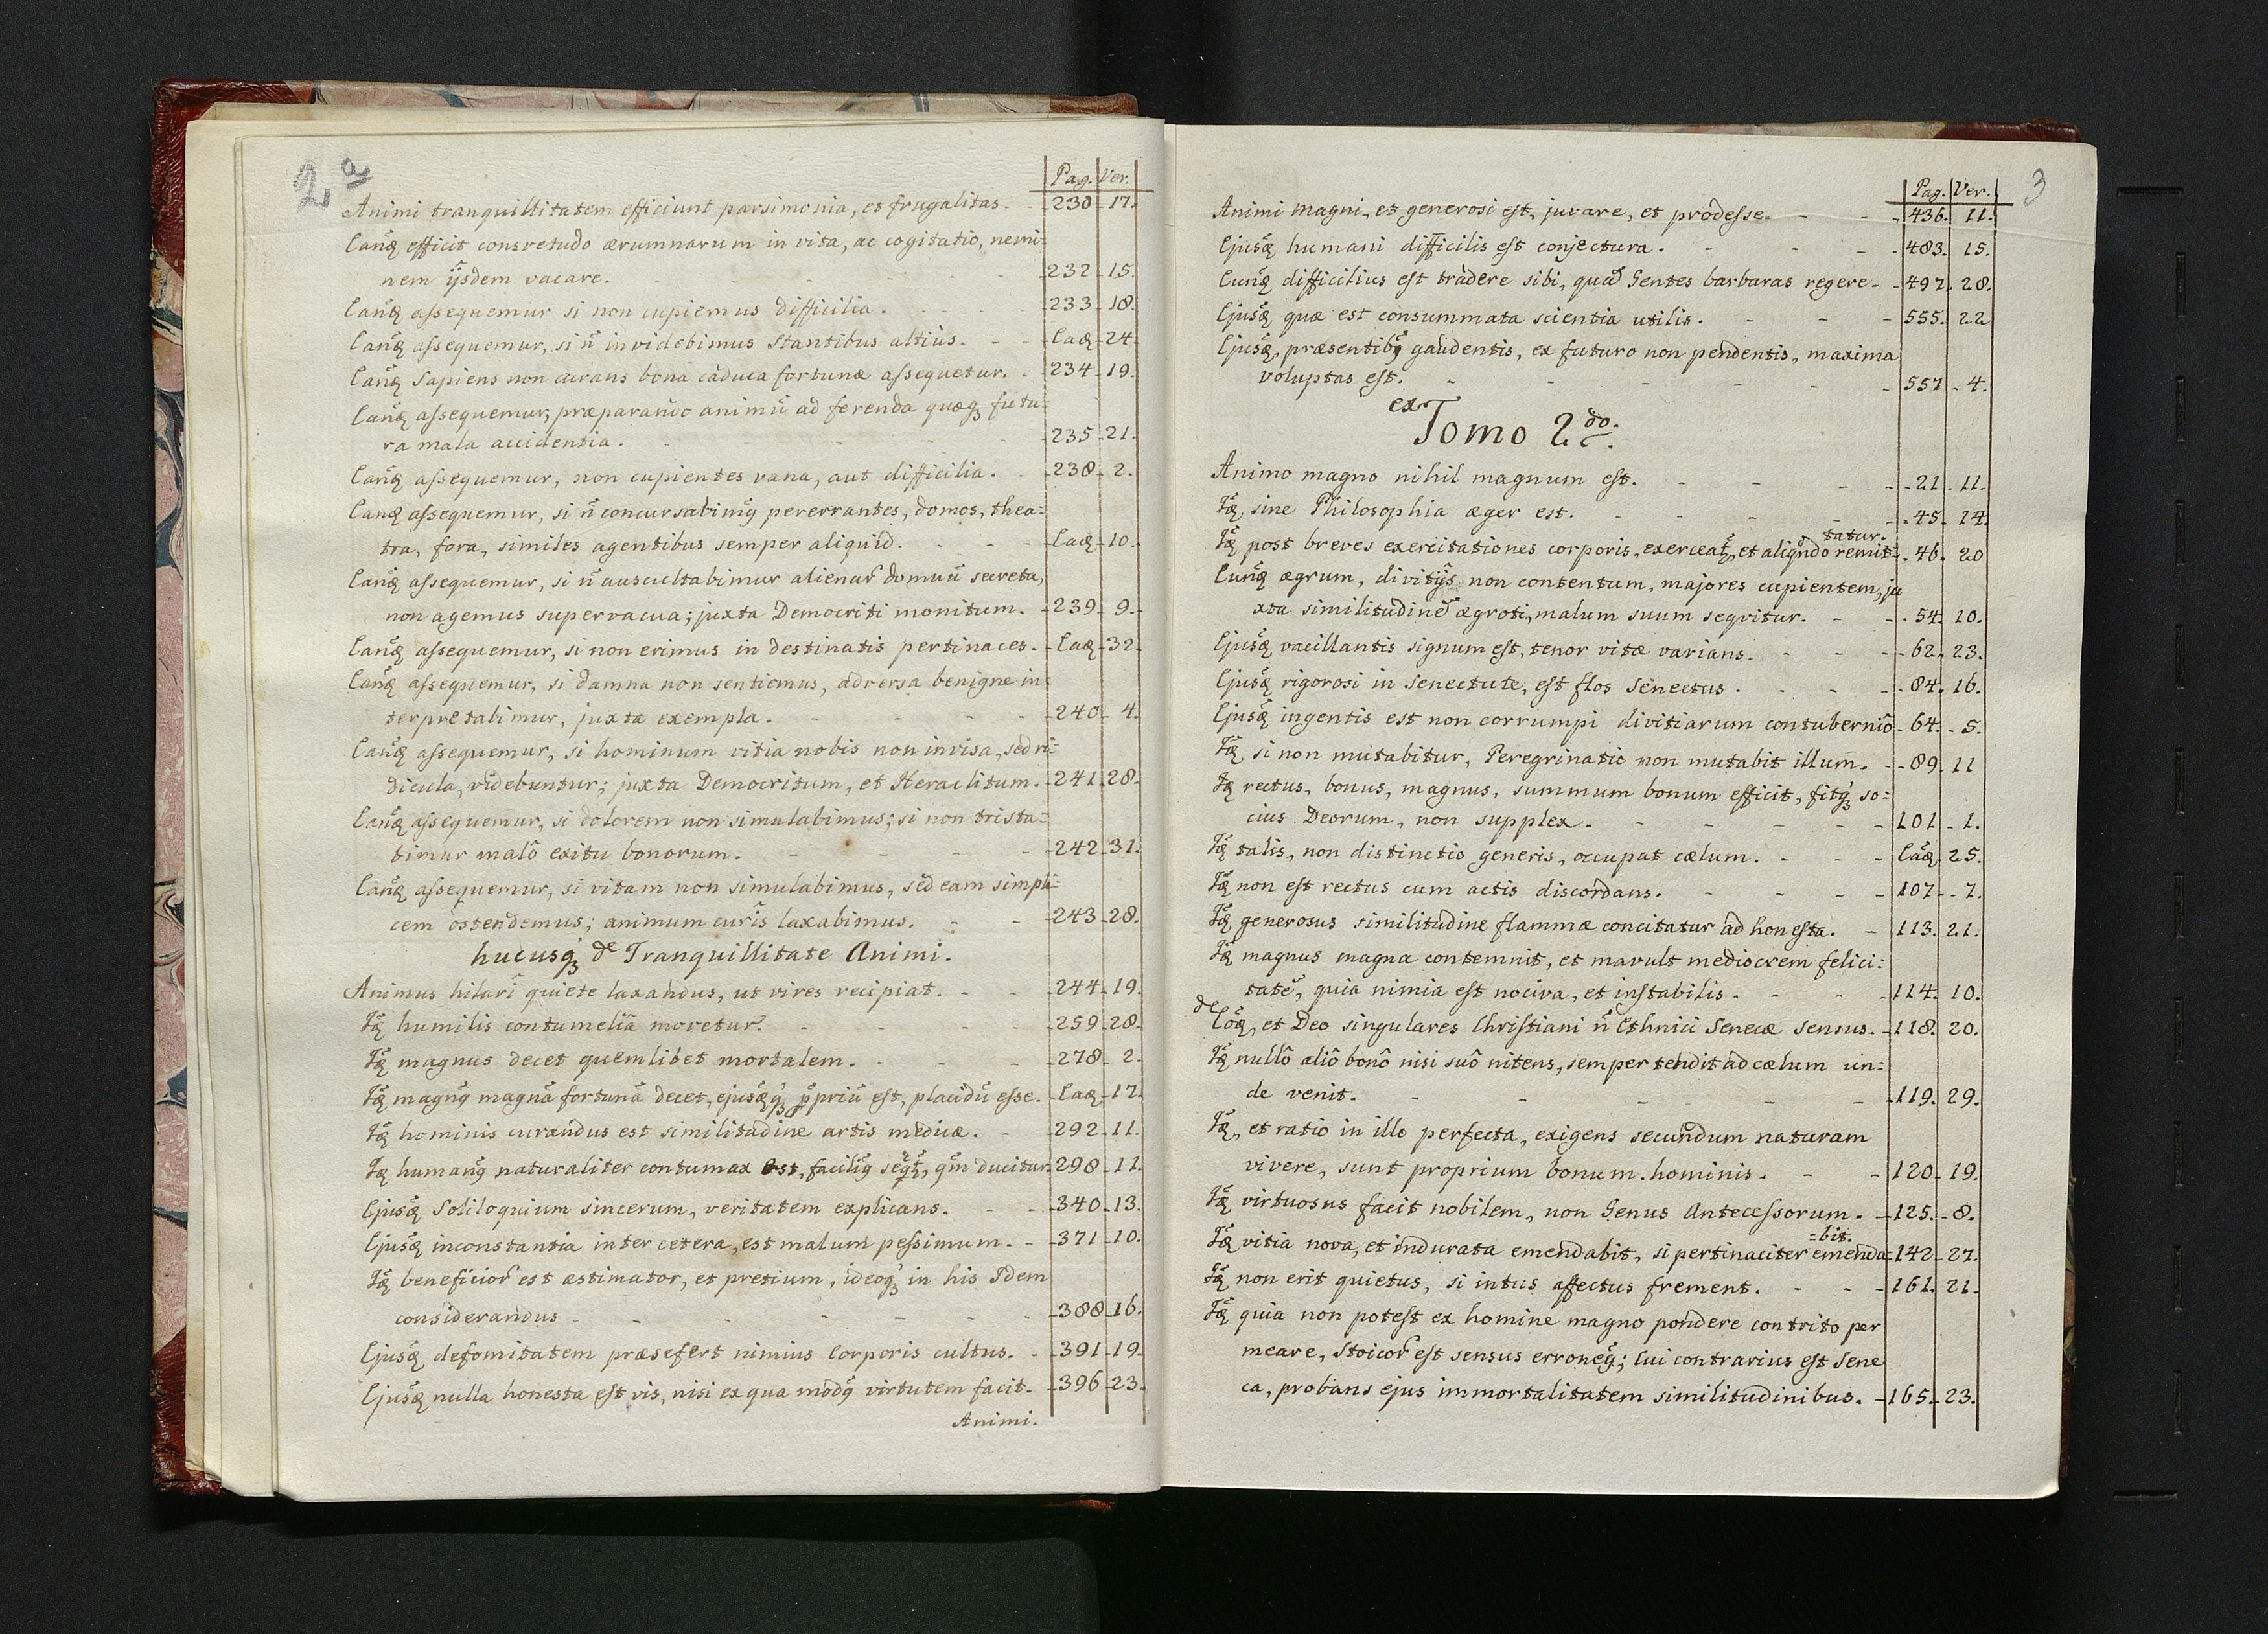 2 a
Pag. Ver.
Animi tranquillitatem efficiunt parsimonia, et frugalitas. 230 17.
Eand efficit consvetudo ærumnarum in vita, ac cogitatio, nemi=
nem ijsdem vacare. 232 15.
Eand assequemur si non cupiemus difficilia. 233 18.
Eand assequemur, si n̄ invidebimus stantibus altius. Ead 24.
Eand Sapiens non curans bona caduca fortunæ assequetur. 234 19.
Eand assequemur, præparando animū ad ferenda quæqꝫ futu=
ra mala accidentia. 235 21.
Eand assequemur, non cupientes vana, aut difficilia. 238 2.
Eand assequemur, si n̄ concursabimꝰ pererrantes, domos, thea=
tra, fora, similes agentibus semper aliquid. Ead 10.
Eand assequemur, si n̄ auscultabimur alienar̄ domuū secreta,
non agemus supervacua; juxta Democriti monitum. 239 9.
Eand assequemur, si non erimus in destinatis pertinaces. Ead 32.
Eand assequemur, si damna non sentiemus, adversa benigne in=
terpretabimur, juxta exempla. 240 4.
Eand assequemur, si hominum vitia nobis non invisa, sed ri=
dicula, videbuntur; juxta Democritum, et Heraclitum. 241 28.
Eand assequemur, si dolorem non simulabimus; si non trista=
bimur malô exitu bonorum. 242 31.
Eand assequemur, si vitam non simulabimus, sed eam simpli=
cem ostendemus; animum curis laxabimus. 243 28.
hucusqꝫ de Tranquillitate Animi.
Animus hilari quiete laxandus, ut vires recipiat. 244 19.
Id humilis contumeliâ movetur. 259 28.
Id magnus decet quemlibet mortalem. 278 2.
Id magnꝰ magnā fortunā decet, ejusdqꝫ ꝓpriū est, placidū esse. Ead 17.
Id hominis curandus est similitudine artis medicæ. 292 11.
Id humanꝰ naturaliter contumax est, faciliꝰ seqt, qm̄ ducitur 298 11.
Ejusd Soliloquium sincerum, veritatem explicans. 340 13.
Ejusd inconstantia inter cetera, est malum pessimum. 371 10.
Id beneficior̄ est æstimator, et pretium, ideoqꝫ in his Idem
considerandus 388 16.
Ejusd defomitatem præsefert nimius Corporis cultus. 391 19.
Ejusd nulla honesta est vis, nisi ex qua modꝰ virtutem facit. 396 23.
Animi.
3
Pag. Ver.
Animi magni, et generosi est, juvare, et prodesse. 436. 11.
Ejusd humani difficilis est conjectura. 483. 15.
Eund difficilius est tradere sibi, quā Gentes barbaras regere. 497. 28.
Ejusd quæ est consummata scientia utilis. 555. 22
Ejusd, præsentibꝰ gaudentis, ex futuro non pendentis, maxima
voluptas est. 557 4.
ex Tomo 2do.
Animo magno nihil magnum est. 21 11.
Id, sine Philosophia æger est. 45. 14.
tatur.
Id post breves exercitationes corporis, exerceat, et aliqndo remit= 46. 20
Eund ægrum, divitijs non contentum, majores cupientem, ju
xta similitudinē ægroti, malum suum seqvitur. 54. 10.
Ejusd vacillantis signum est, tenor vitæ varians. 62. 23.
Ejusd rigorosi in senectute, est flos Senectus. 84. 16.
Ejusd ingentis est non corrumpi divitiarum contuberniô 64. 5.
Id si non mutabitur, Peregrinatio non mutabit illum. 89. 11
Id rectus, bonus, magnus, summum bonum efficit, fitqꝫ so=
cius Deorum, non supplex. 101 1.
Id talis, non distinctio generis, occupat cælum. Ead 25.
Id non est rectus cum actis discordans. 107 7.
Id generosus similitudine flammæ concitatur ad honesta. 113. 21.
Id magnus magna contemnit, et mavult mediocrem felici=
tatē, quia nimia est nociva, et instabilis. 114. 10.
de Eod, et Deo singulares Christiani n̄ Ethnici Senecæ sensus. 118. 20.
Id nullô aliô bonô nisi suô nitens, semper tendit ad cælum un=
de venit. 119. 29.
Id, et ratio in illo perfecta, exigens secundum naturam
vivere, sunt proprium bonum hominis. 120 19.
Id virtuosus facit nobilem, non Genus Antecessorum. 125. 8.
=bit.
Id vitia nova, et indurata emendabit, si pertinaciter emenda 142 27.
Id non erit quietus, si intus affectus frement. 161. 21.
Id quia non potest ex homine magno pondere contrito per
meare, Stoicor̄ est sensus erroneꝰ; cui contrarius est Sene
ca, probans ejus immortalitatem similitudinibus. 165 23.